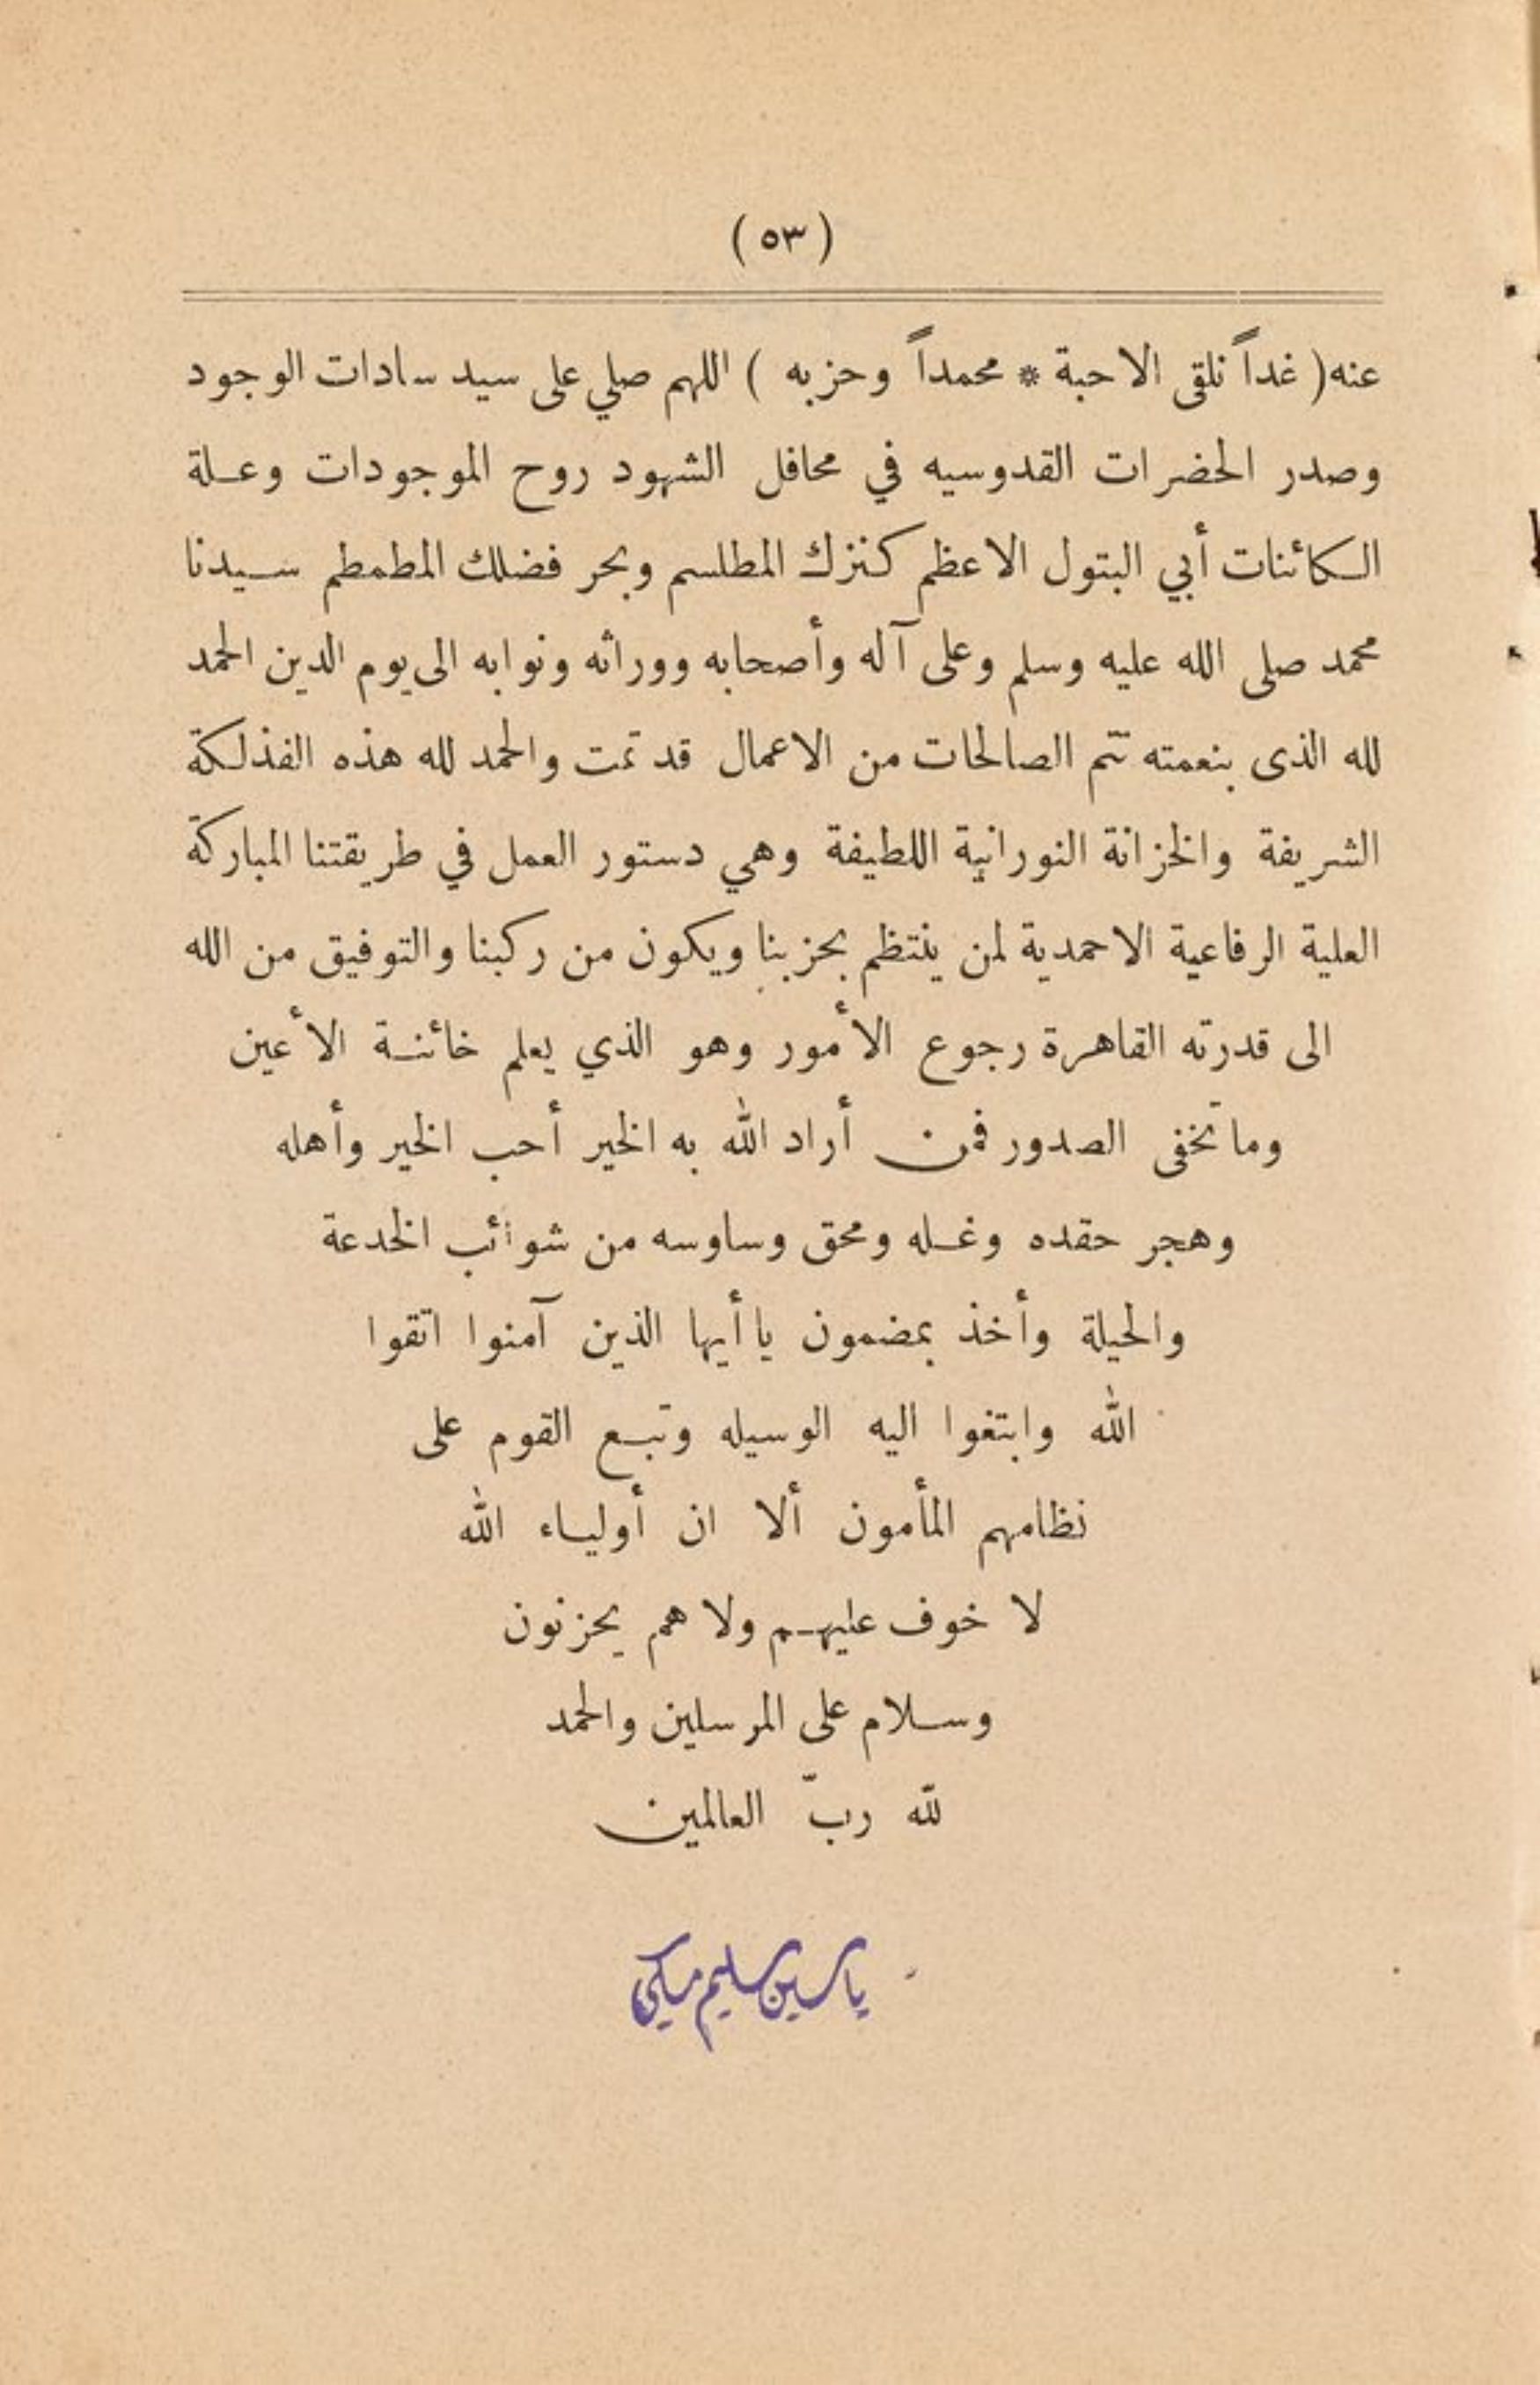 (٥٣)
عنه( غداً نلقى الاحبة * محمداً وحزبه ) اللهم صلي على سيد سادات الوجود
وصدر الحضرات القدوسيه في محافل الشهود روح الموجودات وعلة
الكائنات أبي البتول الاعظم كنزك المطلسم وبحر فضلك المطمطم سيدنا
محمد صلى الله عليه وسلم وعلى آله وأصحابه ووراثه ونوابه الى يوم الدين الحمد
لله الذى بنعمته تتم الصالحات من الاعمال قد تمت والحمد لله هذه الفذلكة
الشريفة والخزانة النورانية اللطيفة وهي دستور العمل في طريقتنا المباركة
العلية الرفاعية الاحمدية لمن ينتظم بحزبنا ويكون من ركبنا والتوفيق من الله
الى قدرته القاهرة رجوع الأمور وهو الذي يعلم خائنة الأعين
وما تخفى الصدور فمن أراد الله به الخير أحب الخير وأهله
وهجر حقده وغله ومحق وساوسه من شوائب الخدعة
والحيلة وأخذ بمضمون ياأيها الذين آمنوا اتقوا
الله وابتغوا اليه الوسيله وتبع القوم على
نظامهم المأمون ألا ان أولياء الله
لا خوف عليهم ولا هم يحزنون
وسلام على المرسلين والحمد
لله ربّ العالمين
ياسين سليم مكي